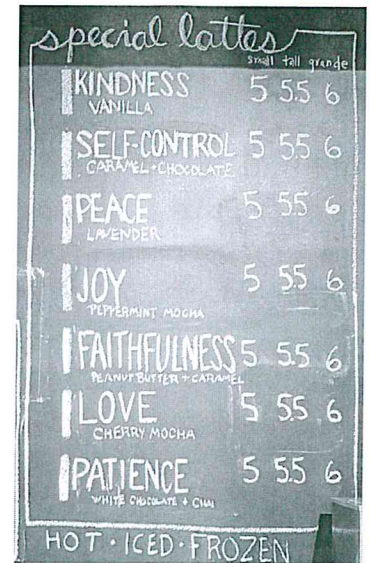 special lattes
small tall grande
KINDNESS 5 5.5 6
VANILLA
SELF-CONTROL 5 5.5 6
CARAMEL + CHOCOLATE
PEACE 5 5.5 6
LAVENDER
JOY 5 5.5 6
PEPPERMINT MOCHA
FAITHFULNESS 5 5.5 6
PEANUT BUTTER + CARAMEL
LOVE 5 5.5 6
CHERRY MOCHA
PATIENCE 5 5.5 6
WHITE CHOCOLATE + CHAI
HOT • ICED • FROZEN